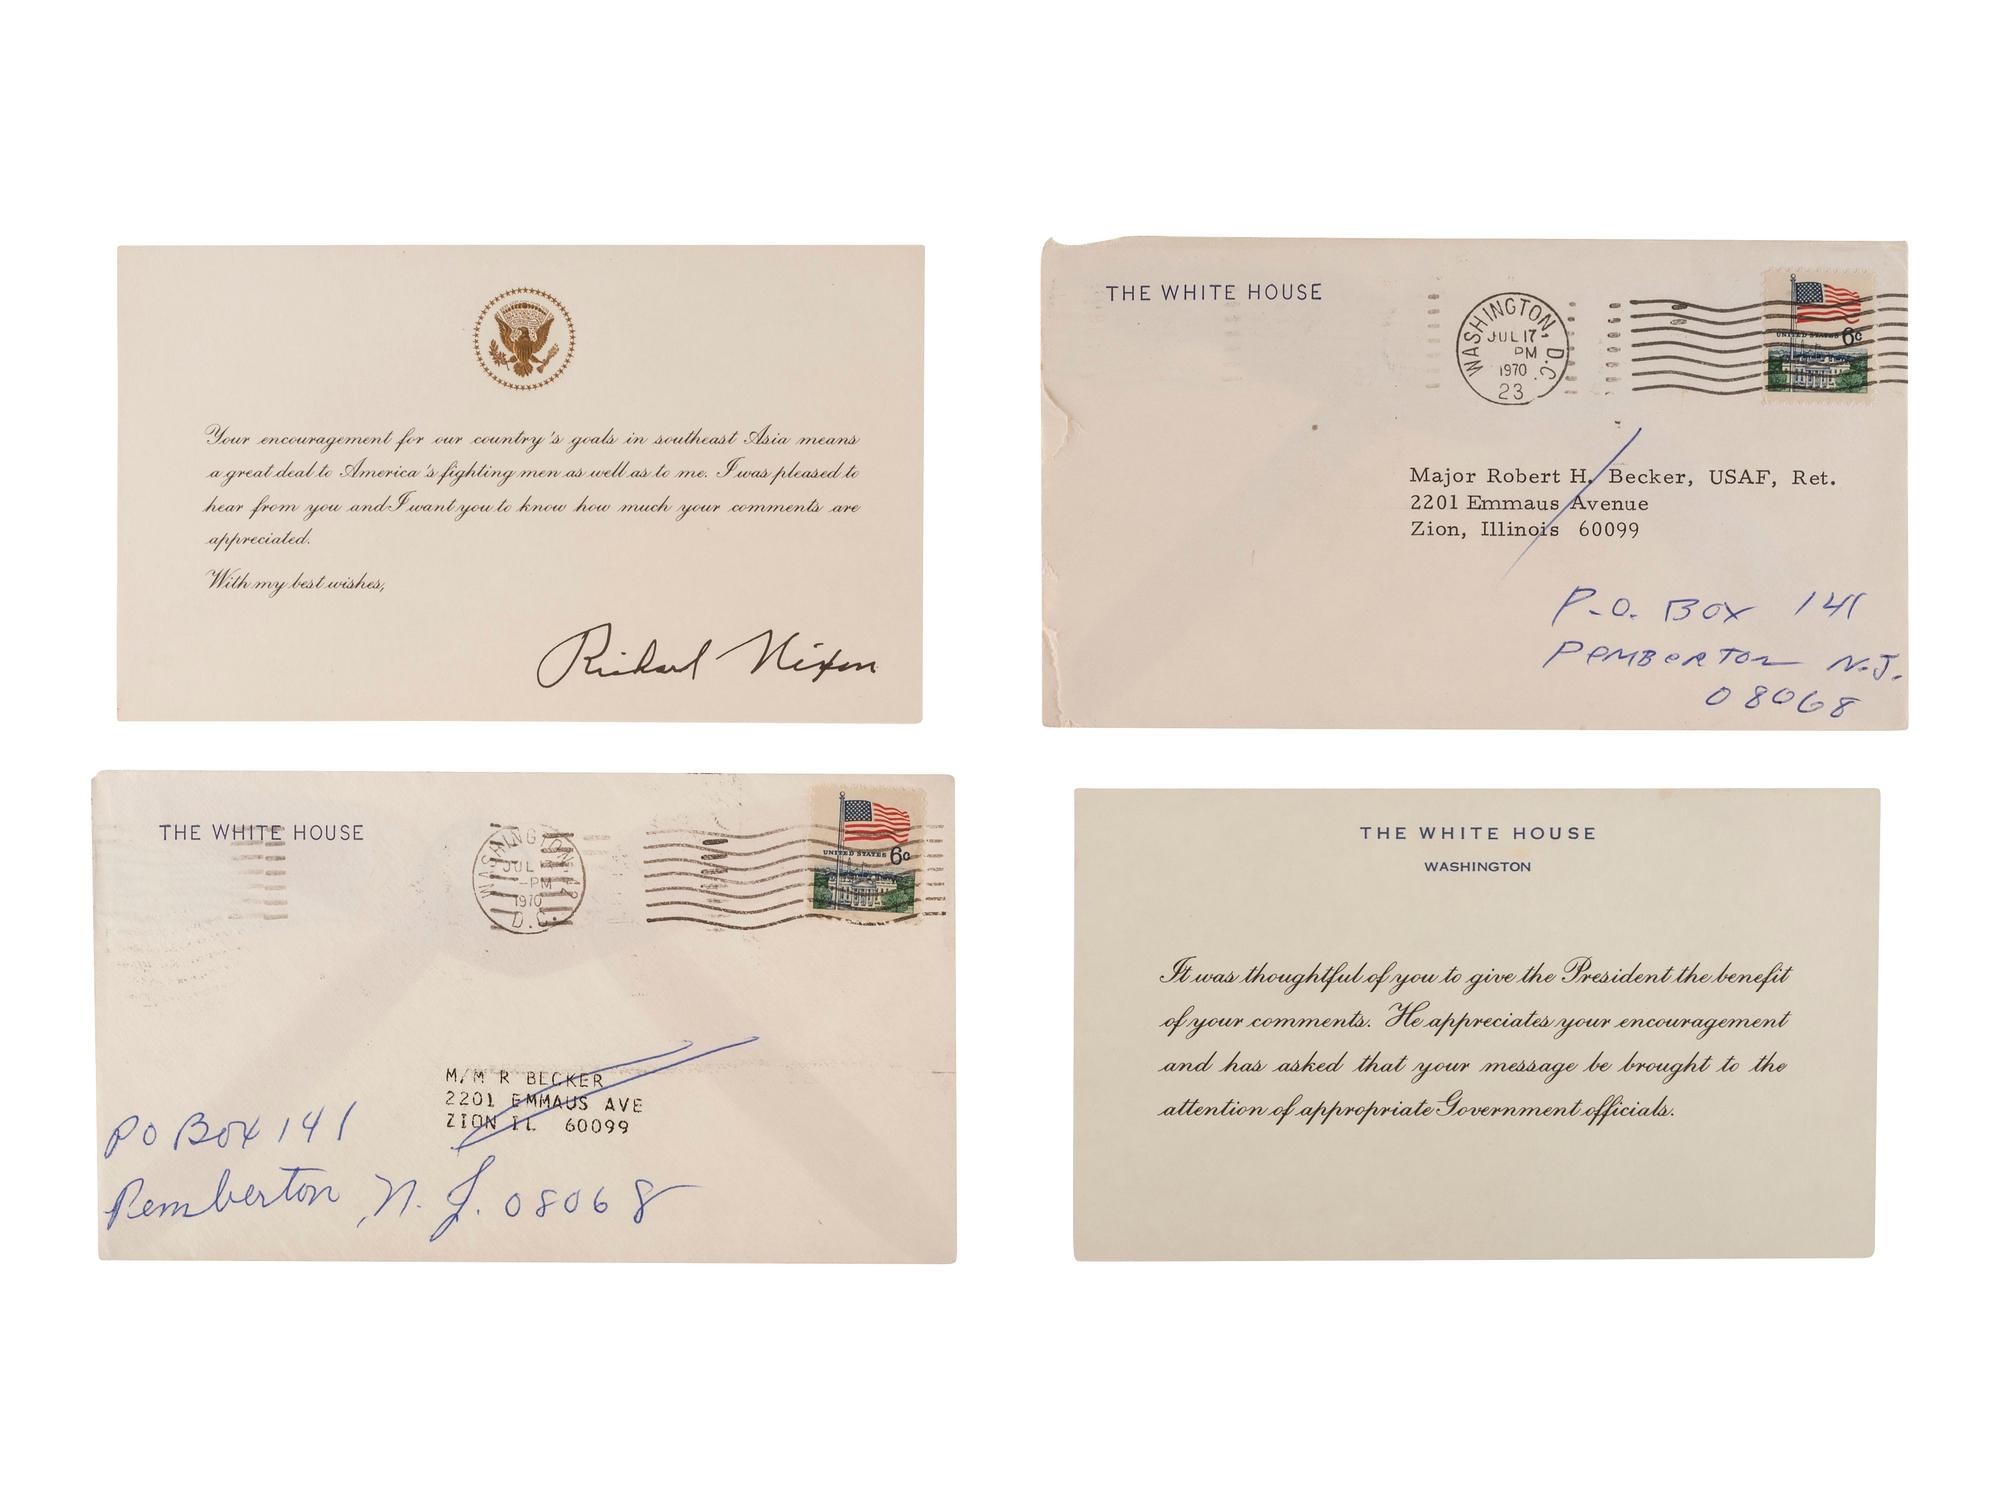 Your encouragement for our country's goals in southeast Asia means
a great deal to America's fighting men as well as to me. I was pleased to
hear from you and I want you to know how much your comments are
appreciated.
With my best wishes,
Richard Nixon
THE WHITE HOUSE
WASHINGTON, D.C.
JUL 17
PM
1970
23
UNITED STATES 6c
Major Robert H. Becker, USAF, Ret.
2201 Emmaus Avenue
Zion, Illinois 60099
P.O. BOX 141
PEMBERTON N.J.
08068
THE WHITE HOUSE
WASHINGTON
JUL
PM
1970
D.C.
UNITED STATES 6c
M/M R BECKER
2201 EMMAUS AVE
ZION IL 60099
PO Box 141
Pemberton, N.J. 08068
THE WHITE HOUSE
WASHINGTON
It was thoughtful of you to give the President the benefit
of your comments. He appreciates your encouragement
and has asked that your message be brought to the
attention of appropriate Government officials.